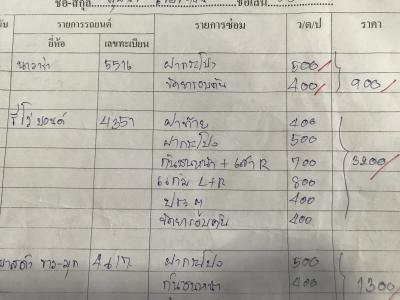 ชื่อ-สกุล ชื่อเล่น
รายการรถยนต์ รายการซ่อม ว/ด/ป ราคา
ยี่ห้อ เลขทะเบียน
นาวาร่า 5516 ฝากระโปง 500
ขัดยารอบคัน 400 900
รีโว่ 4351 ฝาท้าย 400
ฝากระโปง 500
กันชนหน้า + R 700 3200
แก้ม L+R 800
ประตู 400
ขัดยารอบคัน 400
4617 ฝากระโปง 500
กันชนหน้า 400 1300